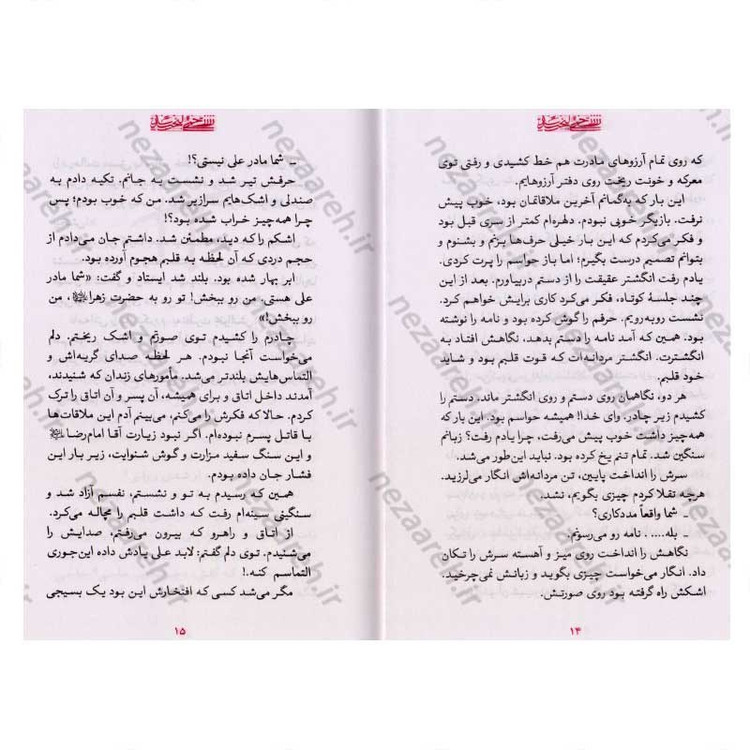 که روی تمام آرزوهای مادرت هم خط کشیدی و رفتی توی
معرکه و خونت ریخت روی دفتر آرزوهایم.
این بار که به‌گمانم آخرین ملاقاتمان بود، خوب پیش
نرفت. بازیگر خوبی نبودم. دلهره‌ام کمتر از سری قبل بود
و فکر می‌کردم که این بار خیلی حرف‌ها بزنم و بشنوم و
بتوانم تصمیم درست بگیرم؛ اما باز حواسم را پرت کردی.
یادم رفت انگشتر عقیقت را از دستم دربیاورم. بعد از این
چند جلسهٔ کوتاه، فکر می‌کرد کاری برایش خواهم کرد.
نشست روبه‌رویم. حرفم را گوش کرده بود و نامه را نوشته
بود. همین که آمد نامه را دستم بدهد، نگاهش افتاد به
انگشترت. انگشتر مردانه‌ات که قوت قلبم بود و شاید
خود قلبم.
هر دو، نگاهمان روی دستم و روی انگشتر ماند. دستم را
کشیدم زیر چادر. وای خدا! همیشه حواسم بود. این بار که
همه‌چیز داشت خوب پیش می‌رفت، چرا یادم رفت؟ زبانم
سنگین شد. تمام تنم یخ کرده بود. نباید این‌طور می‌شد.
سرش را انداخت پایین، تن مردانه‌اش انگار می‌لرزید.
هرچه تقلا کردم چیزی بگویم، نشد.
ـ شما واقعاً مددکاری؟
ـ بله.... . نامه رو می‌رسونم.
نگاهش را انداخت روی میز و آهسته سرش را تکان
داد. انگار می‌خواست چیزی بگوید و زبانش نمی‌چرخید.
اشکش راه گرفته بود روی صورتش.
۱۴
ـ شما مادر علی نیستی؟!
حرفش تیر شد و نشست به جانم. تکیه دادم به
صندلی و اشک‌هایم سرازیر شد. من که خوب بودم؛ پس
چرا همه‌چیز خراب شده بود؟!
اشکم را که دید، مطمئن شد. داشتم جان می‌دادم از
حجم دردی که آن لحظه به قلبم هجوم آورده بود.
ابر بهار شده بود. بلند شد ایستاد و گفت: «شما مادر
علی هستی. من رو ببخش! تو رو به حضرت زهرا، من
رو ببخش!»
چادرم را کشیدم توی صورتم و اشک ریختم. دلم
می‌خواست آنجا نبودم. هر لحظه صدای گریه‌اش و
التماس‌هایش بلندتر می‌شد. مأمورهای زندان که شنیدند،
آمدند داخل اتاق و برای همیشه، آن پسر و آن اتاق را ترک
کردم. حالا که فکرش را می‌کنم، می‌بینم آدم این ملاقات‌ها
با قاتل پسرم نبوده‌ام. اگر نبود زیارت آقا امام‌رضا
و این سنگ سفید مزارت و گوش شنوایت، زیر بار این
فشار جان داده بودم.
همین که رسیدم به تو و نشستم، نفسم آزاد شد و
سنگینی سینه‌ام رفت که داشت قلبم را مچاله می‌کرد.
از اتاق و راهرو که بیرون می‌رفتم، صدایش را
می‌شنیدم. توی دلم گفتم: لابد علی یادش داده این‌جوری
التماسم کنه.!
مگر می‌شد کسی که افتخارش این بود یک بسیجی
۱۵
nezaareh.ir
nezaareh.ir
nezaareh.ir
nezaareh.ir
nezaareh.ir
nezaareh.ir